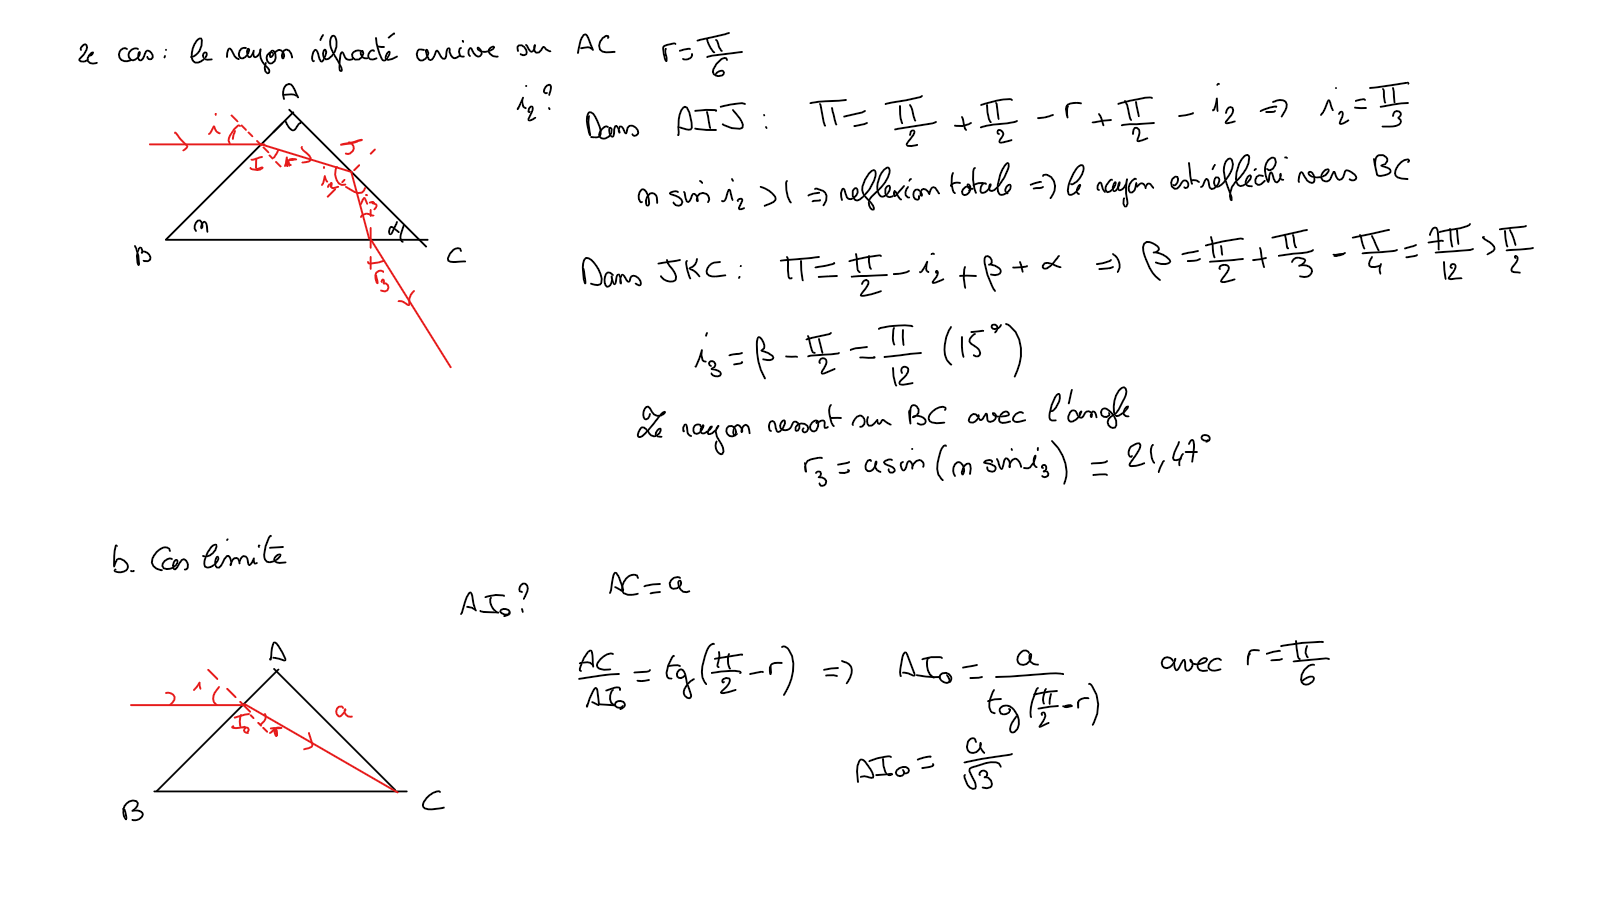 2e cas : le rayon réfracté arrive sur AC r = π/6
i₂ ?
Dans AIJ : π = π/2 + π/2 - r + π/2 - i₂ => i₂ = π/3
n sin i₂ > 1 => reflexion totale => le rayon est réfléchi vers BC
Dans JKC : π = π/2 - i₂ + β + α => β = π/2 + π/3 - π/4 = 7π/12 > π/2
i₃ = β - π/2 = π/12 (15°)
Le rayon ressort sur BC avec l'angle
r₃ = asin(n sin i₃) = 21,47°
A
i
I
r
J
i₂
i₂
n
α
B
C
r₃
b. Cas limite
AI₀ ? AC = a
AC/AI₀ = tg(π/2 - r) => AI₀ = a/tg(π/2 - r) avec r = π/6
AI₀ = a/√3
A
i
I₀
r
a
B
C